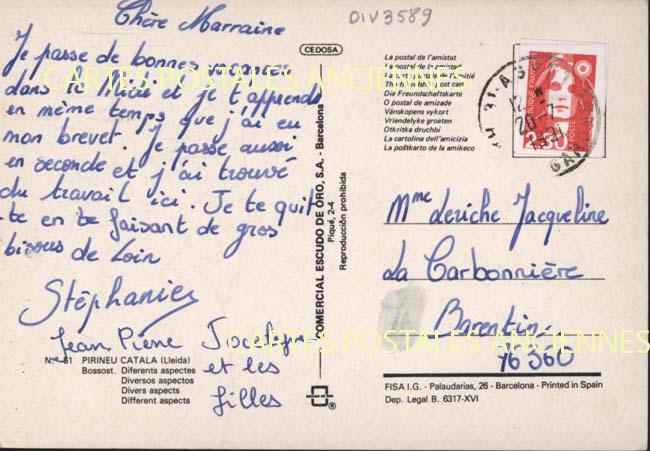 Chère Marraine
DIV3589
Je passe de bonnes vacances
dans le Midi et je t'apprends
en même temps que j'ai eu
mon brevet. Je passe aussi
en seconde et j'ai trouvé
du travail ici. Je te quit
-te en te faisant de gros
bisous de Loin
Stéphanie
Jean Pierre Jocelyne
et les
filles
N.º 61 PIRINEU CATALA (Lleida)
Bossost. Diferents aspectes
Diversos aspectos
Divers aspects
Different aspects
CEDOSA
COMERCIAL ESCUDO DE ORO, S.A. - Barcelona
Piqué, 2-4
Reproducción prohibida
La postal de l'amistat
La postal de la amistad
La carte postale de l'amitié
The friendship post card
Die Freundschaftskarte
O postal de amizade
Vänskapens vykort
Vriendelyke groeten
Otkritka druchbi
La cartolina dell'amicizia
La poŝtkarto de la amikeco
2,30
20-7
1991
Mme Leriche Jacqueline
La Carbonnière
Barentin
76360
FISA I.G. - Palaudarias, 26 - Barcelona - Printed in Spain
Dep. Legal B. 6317-XVI
CARTES POSTALES ANCIENNES
CARTES POSTALES ANCIENNES